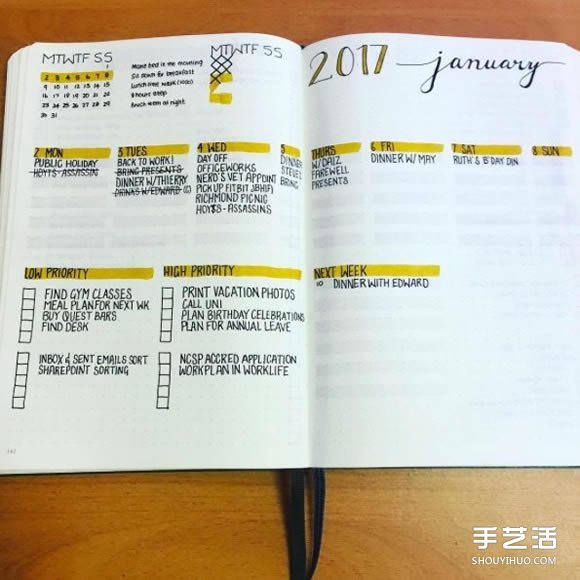 MTWTF SS
1
2 3 4 5 6 7 8
9 10 11 12 13 14 15
16 17 18 19 20 21 22
23 24 25 26 27 28 29
30 31
Made bed in the morning
Sit down for breakfast
Lunchtime walk
8 hours sleep
Brush teeth at night
MTWTF SS
2017 january
2 MON
PUBLIC HOLIDAY
HOYTS - ASSASSINS
3 TUES
BACK TO WORK!
BRING PRESENTS
DINNER W/THIERRY
DRINKS W/EDWARD (C)
4 WED
DAY OFF
OFFICEWORKS
NERD'S VET APPOINT
PICK UP FITBIT JBHIFI
RICHMOND PICNIC
HOY$S - ASSASSINS
5 THURS
DINNER W/DAIZ
STEVE'S FAREWELL
BRING PRESENTS
6 FRI
DINNER W/ MAY
7 SAT
RUTH'S B'DAY DIN
8 SUN
LOW PRIORITY
FIND GYM CLASSES
MEAL PLAN FOR NEXT WK
BUY QUEST BARS
FIND DESK
INBOX & SENT EMAILS SORT
SHAREPOINT SORTING
HIGH PRIORITY
PRINT VACATION PHOTOS
CALL UNI
PLAN BIRTHDAY CELEBRATIONS
PLAN FOR ANNUAL LEAVE
NCSP ACCRED APPLICATION
WORKPLAN IN WORKLIFE
NEXT WEEK
10 DINNER WITH EDWARD
142
手艺活
SHOUYIHUO.COM